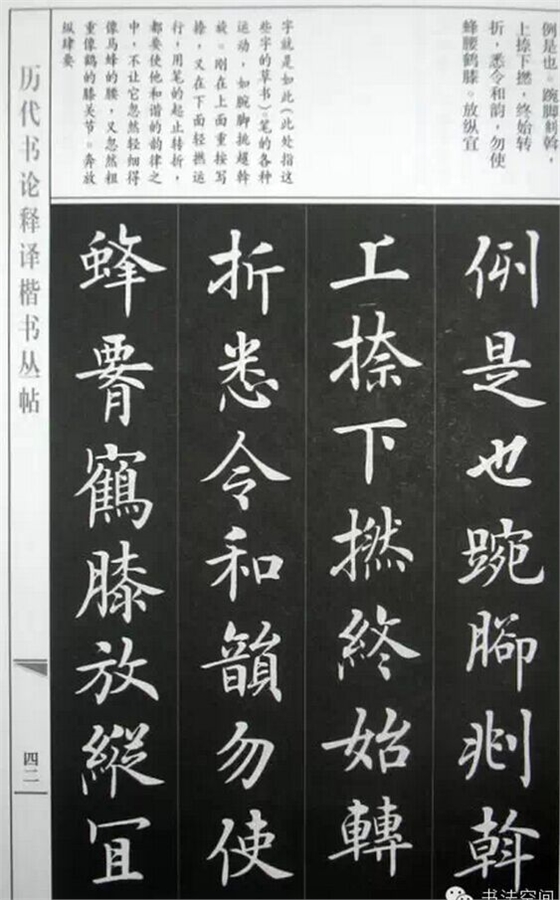 例是也。踠脚斡,
上捺下撚,终始转
折,悉令和韵,勿使
蜂腰鹤膝。放纵宜
字就是如此(此处指这
些字的草书)。笔的各种
运动,如腕脚挑越斡
旋。刚在上面重按写
捺,又在下面轻撚运
行,用笔的起止转折,
都要使他和谐的韵律之
中,不让它忽然轻细得
像马蜂的腰,又忽然粗
重像鹤的膝关节。奔放
纵肆要
例是也踠腳斡
上捺下撚終始轉
折悉令和韻勿使
蜂腰鶴膝放縱宜
历代书论释译楷书丛帖
四二
书法空间